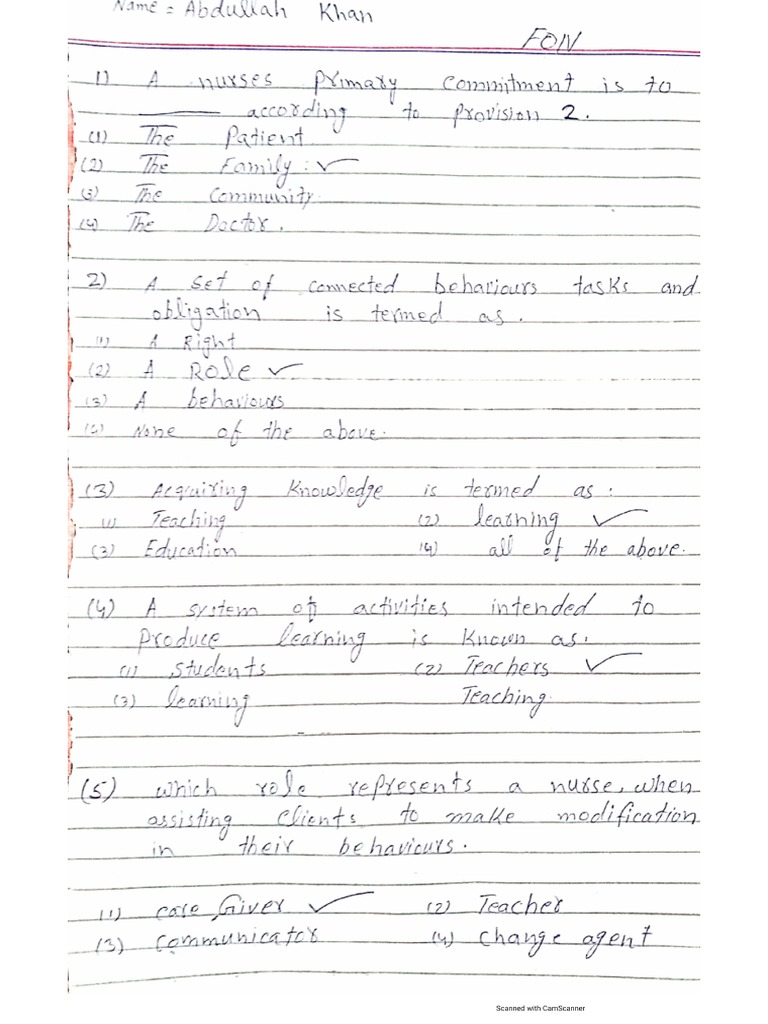 Name = Abdullah Khan
FON
1) A nurses primary commitment is to
______ according to provision 2.
(1) The Patient
(2) The Family : ✓
(3) The Community.
(4) The Doctor.
2) A set of connected behaviours tasks and
obligation is termed as.
(1) A Right
(2) A Role ✓
(3) A behaviours
(4) None of the above.
(3) Acquiring Knowledge is termed as :
(1) Teaching (2) learning ✓
(3) Education (4) all of the above.
(4) A system of activities intended to
produce learning is known as.
(1) students (2) Teachers ✓
(3) learning Teaching.
(5) which role represents a nurse, when
assisting clients to make modification
in their behaviours.
(1) care Giver ✓ (2) Teacher
(3) communicator (4) change agent
Scanned with CamScanner